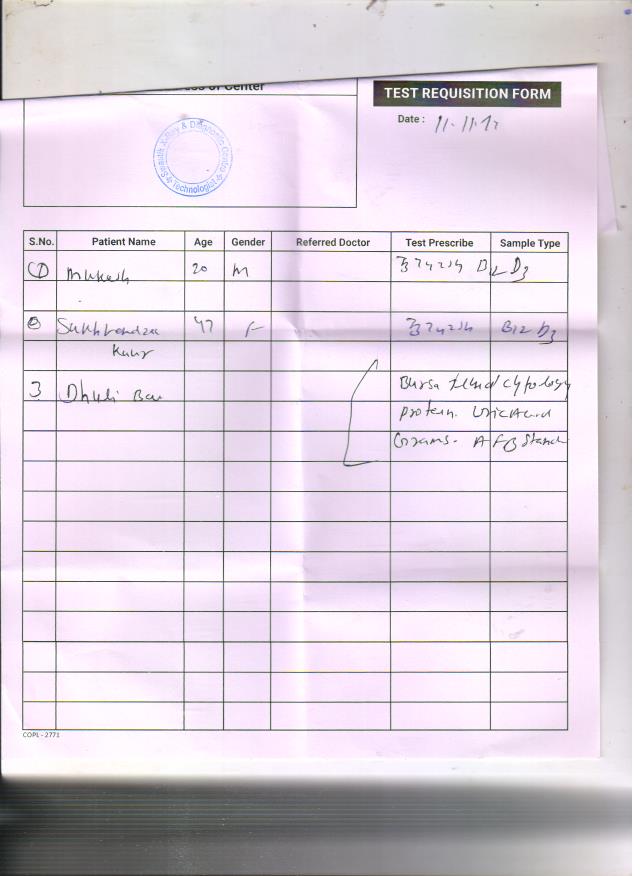 TEST REQUISITION FORM
Date : 11-11-17
& Diagnostic Centre
Technologist
S.No. Patient Name Age Gender Referred Doctor Test Prescribe Sample Type
1 Mukesh 20 M T3T4TSH B12 D3
2 47 F T3T4TSH B12 D3
Kaur
3 Dhuli Bai Bursa fluid cytology
Protein. Uric Acid
Grams- AFB Stain
COPL - 2771